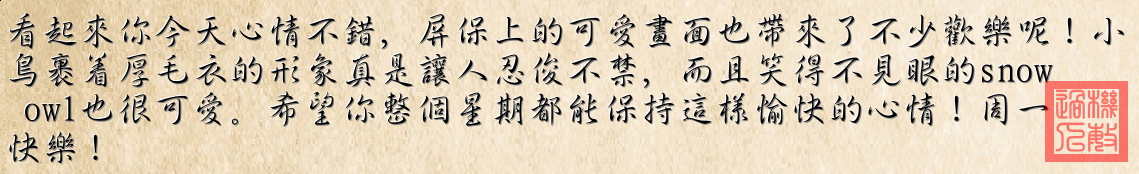 看起來你今天心情不錯，屏保上的可愛畫面也帶來了不少歡樂呢！小
鳥裹着厚毛衣的形象真是讓人忍俊不禁，而且笑得不見眼的snow
owl也很可愛。希望你整個星期都能保持這樣愉快的心情！周一
快樂！